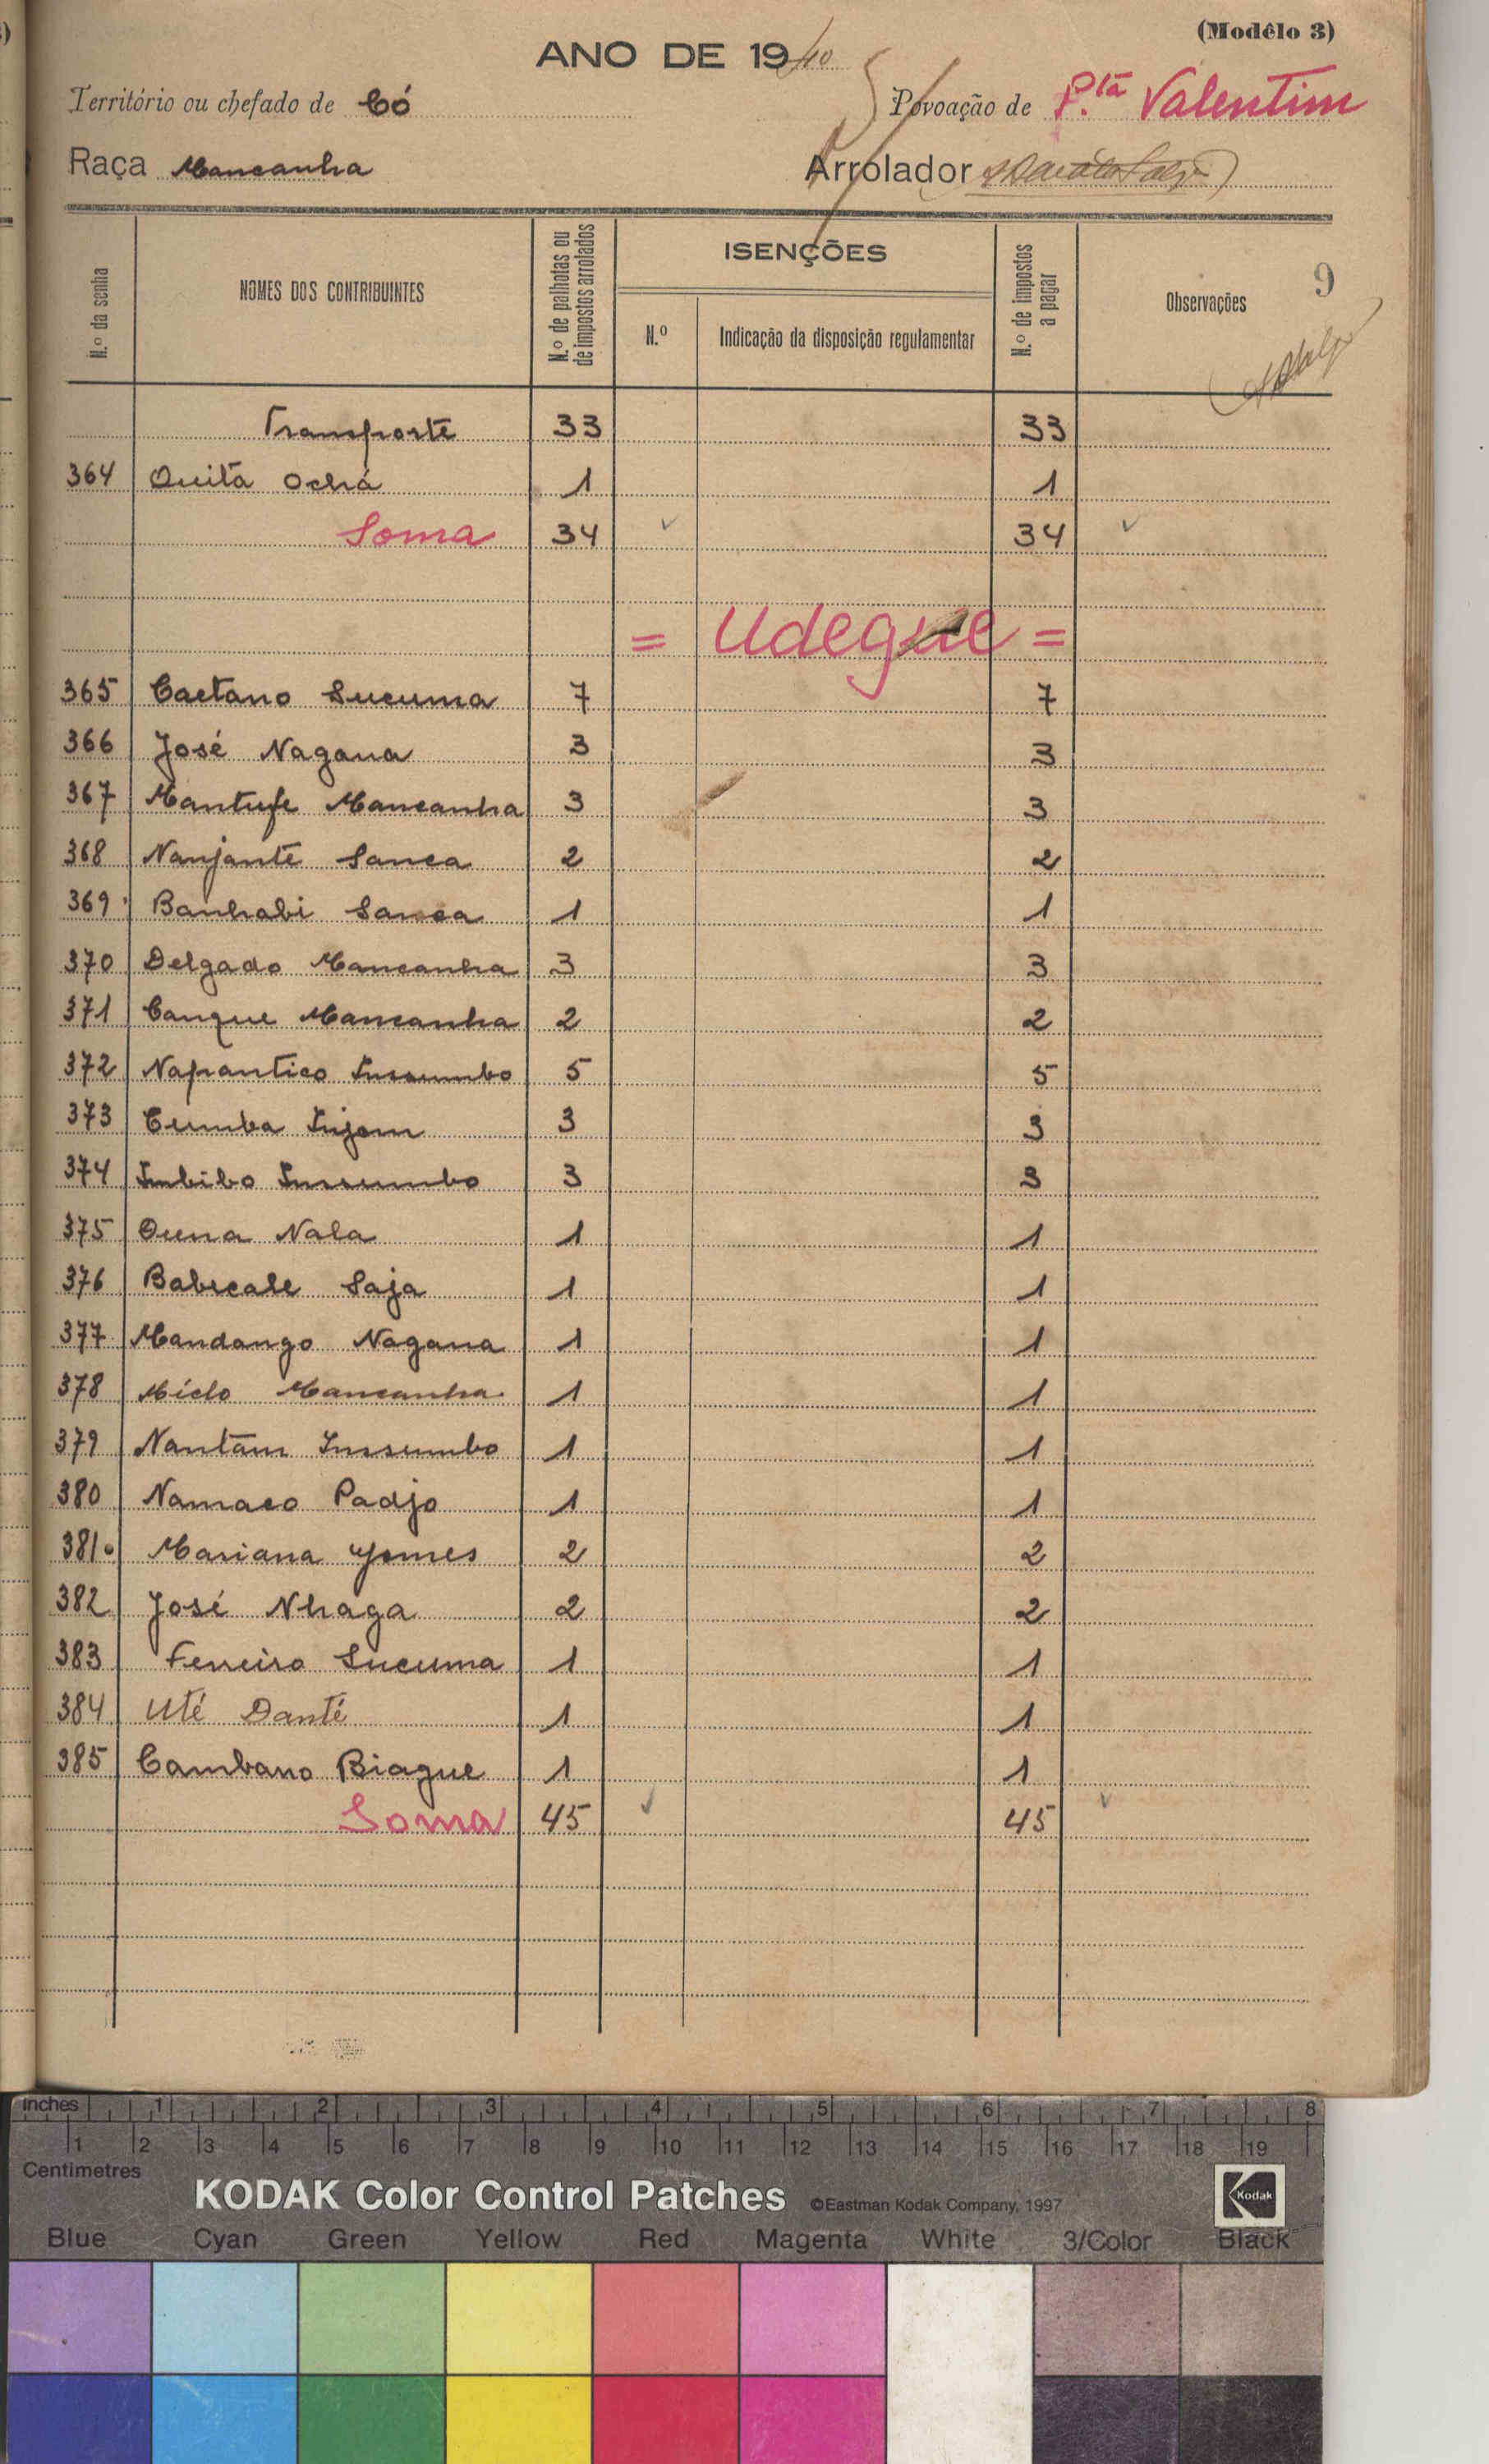 (Modêlo 3)
ANO DE 1940
Território ou chefado de Có
Povoação de P.tã Valentim
Raça Mancanha
Arrolador
9
N.º da senha
NOMES DOS CONTRIBUINTES
N.º de palhotas ou de impostos arrolados
ISENÇÕES
N.º
Indicação da disposição regulamentar
N.º de impostos a pagar
Observações
Transporte 33 33
364 Quitã Ochá 1 1
Soma 34 34
= Udegue =
365 Caetano Sucuma 7 7
366 José Nagana 3 3
367 Mantufe Mancanha 3 3
368 Nanjante Sanca 2 2
369 Banhabi Sanca 1 1
370 Delgado Mancanha 3 3
371 Canque Mancanha 2 2
372 Napantico Inssumbo 5 5
373 Cumba Injom 3 3
374 Imbibo Inssumbo 3 3
375 Ouna Nala 1 1
376 Babicale Saja 1 1
377 Mandango Nagana 1 1
378 Miclo Mancanha 1 1
379 Nantam Inssumbo 1 1
380 Namaco Padjo 1 1
381 Mariana Gomes 2 2
382 José Nhaga 2 2
383 Ferreira Sucuma 1 1
384 Uté Danté 1 1
385 Cambano Biague 1 1
Soma 45 45
Inches 1 2 3 4 5 6 7 8
1 2 3 4 5 6 7 8 9 10 11 12 13 14 15 16 17 18 19
Centimetres
KODAK Color Control Patches ©Eastman Kodak Company, 1997 Kodak
Blue Cyan Green Yellow Red Magenta White 3/Color Black